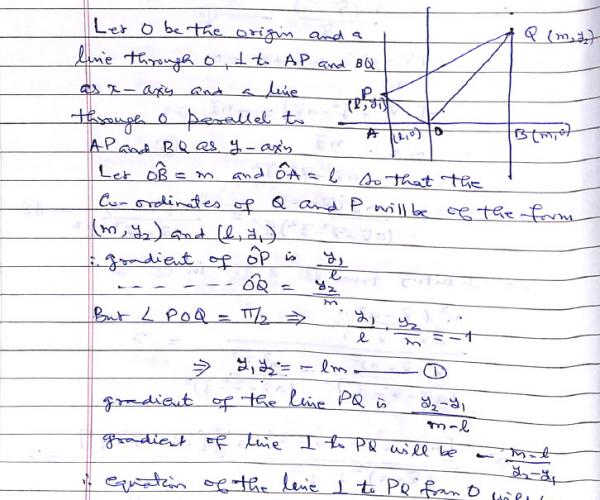 Let O be the origin and a
line through O, ⊥ to AP and BQ
as x-axis and a line
through O parallel to
AP and BQ as y-axis
Q (m, y₂)
P
(l, y₁)
A
(l,0)
O
B(m,0)
Let OB̂ = m and OÂ = l so that the
Co-ordinates of Q and P will be of the form
(m, y₂) and (l, y₁)
∴ gradient of OP̂ is y₁/l
- - - - - - OQ̂ = y₂/m
But ∠ POQ = π/2 ⇒ y₁/l · y₂/m = -1
⇒ y₁y₂ = - lm — ①
gradient of the line PQ is y₂-y₁/m-l
gradient of line ⊥ to PQ will be - m-l/y₂-y₁
∴ equation of the line ⊥ to PQ from O will